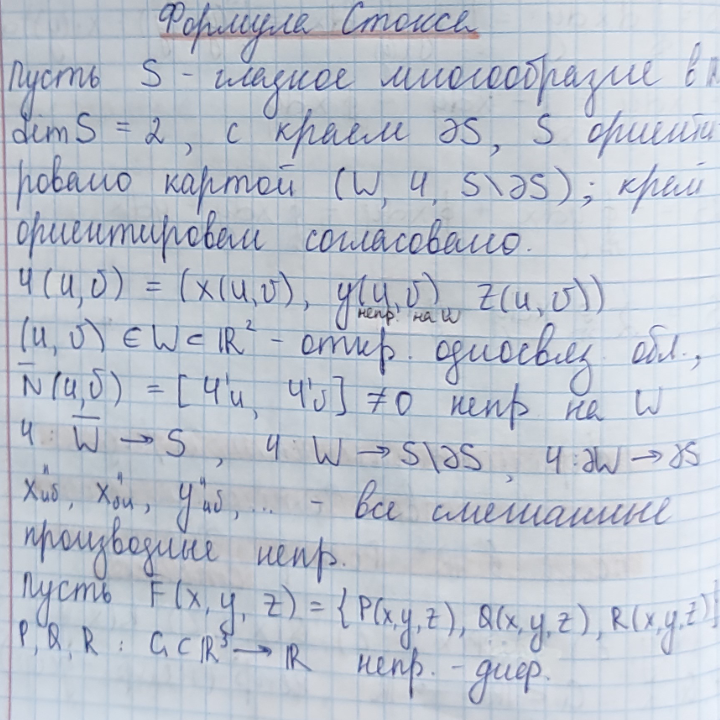 Формула Стокса
Пусть S - гладкое многообразие в
dim S = 2, с краем ∂S, S ориенти
ровано картой (W, Ч, S\∂S); край
ориентирован согласовано.
Ч(u,v) = (x(u,v), y(u,v) z(u,v))
непр. на W
(u,v) ∈ W ⊂ ℝ² - откр. односвяз. обл.,
N̄(u,v) = [Ч'u, Ч'v] ≠ 0 непр. на W
Ч : W̄ → S, Ч : W → S\∂S, Ч : ∂W → ∂S
x''uv, x''vu, y''uv, ... - все смешанные
производные непр.
Пусть F(x, y, z) = {P(x,y,z), Q(x,y,z), R(x,y,z)}
P, Q, R : G ⊂ ℝ³ → ℝ непр. - диф.